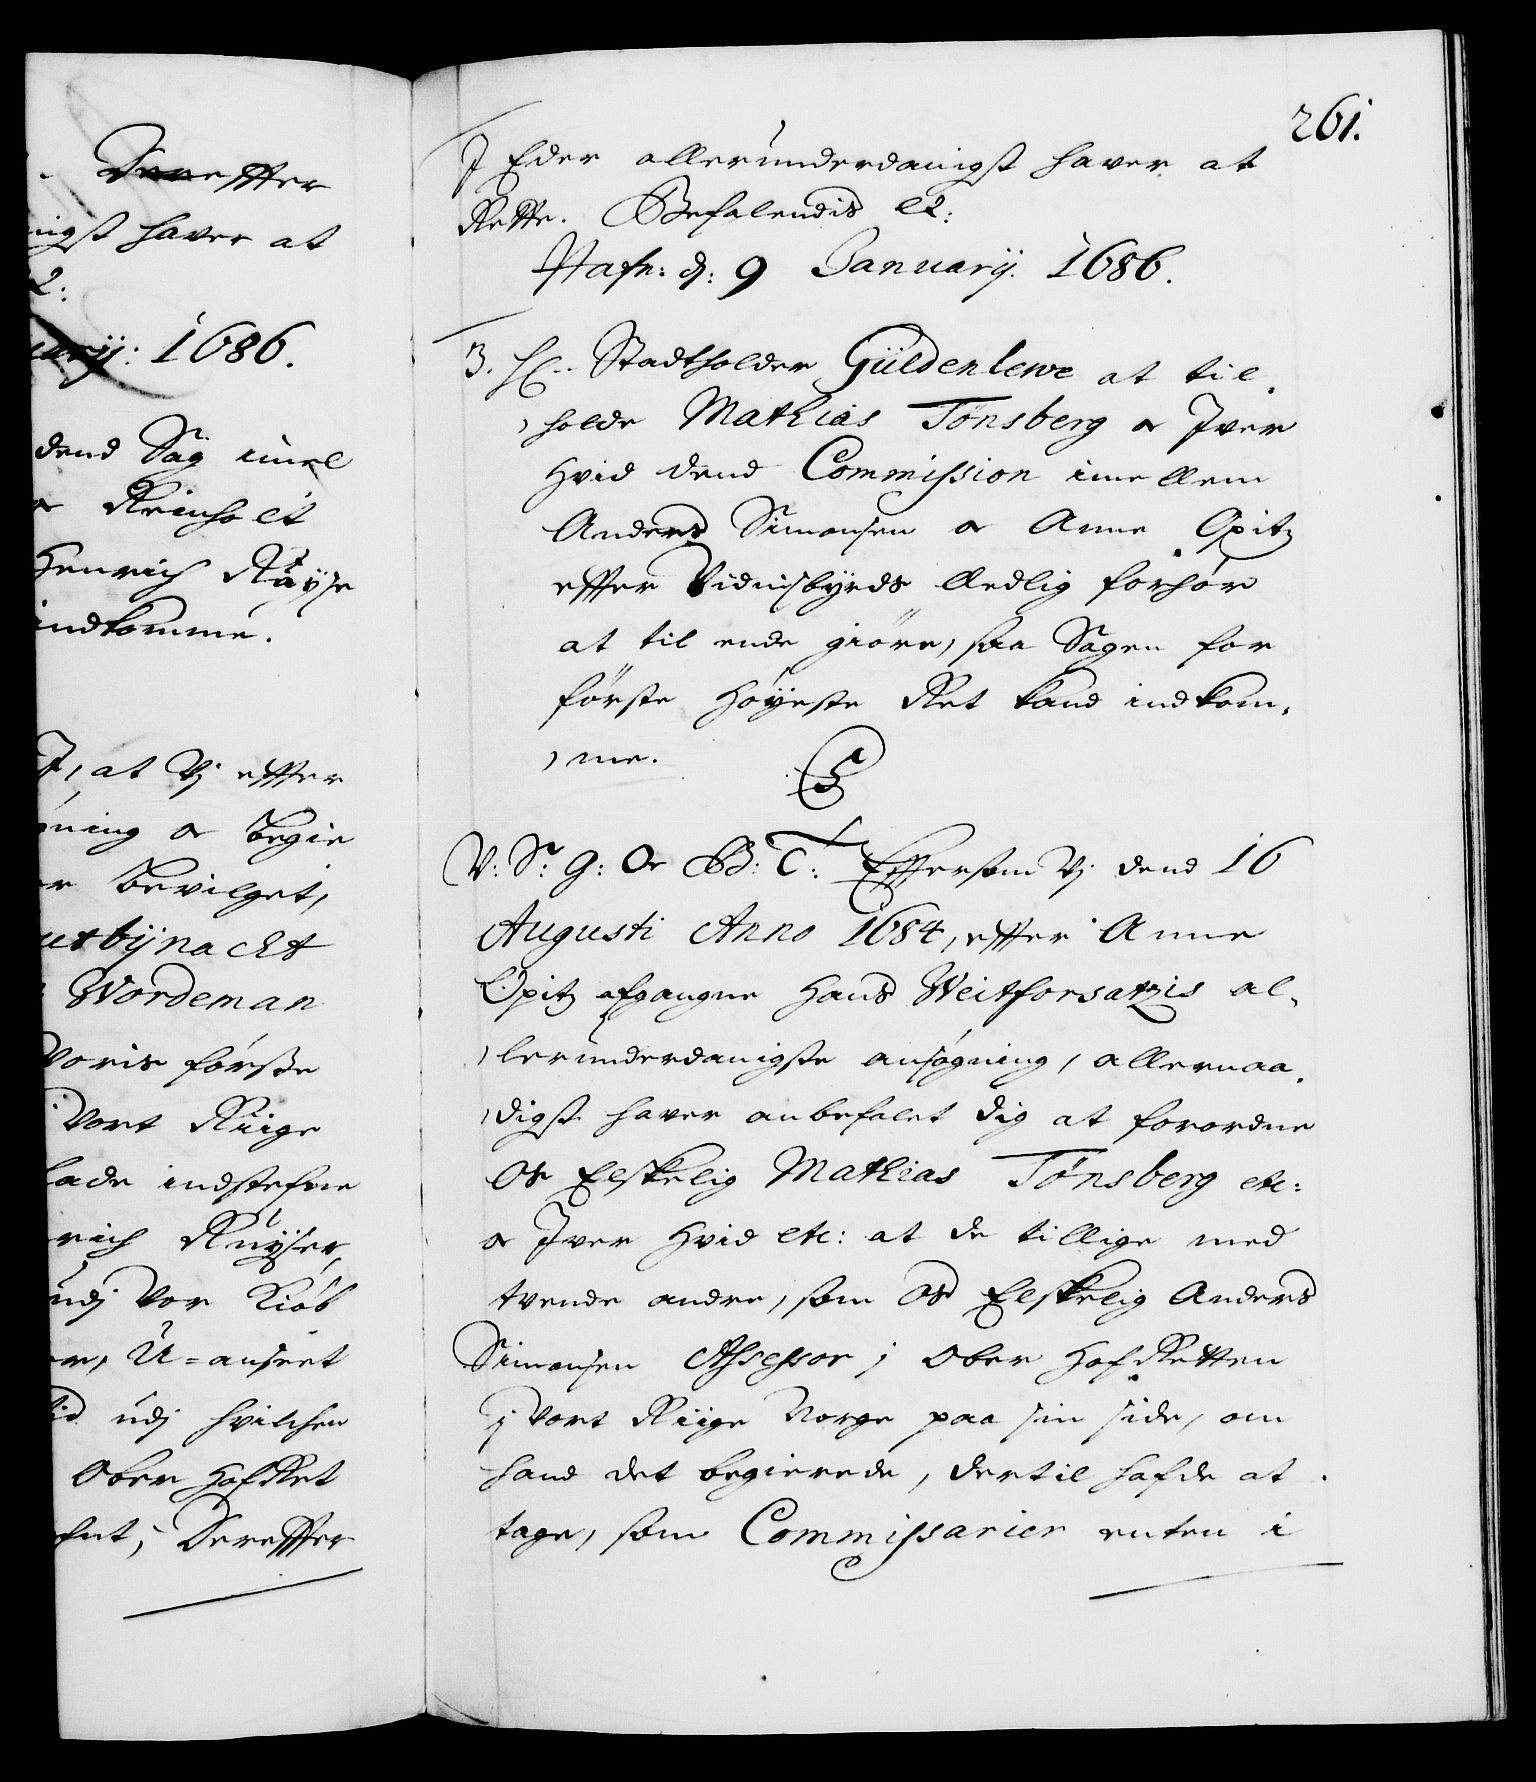 Dereffter
nigst hafver at
uarij: 1686.
dend Sag imel
Reinholt
Henrich Ruyse
indkomme.
J, at Vj effter
øning oc begie
er bevilget,
utbynacht
Wordeman
Voris første
Vort Riige
lade indstefne
rich Ruyser,
udj Vor Kiøb
er, U=anseet
tid udj hvilchen
Ober Hof Ret
fnt, Dereffter
261.
J Eder allerunderdanigst hafver at
Rette. Befalendis etc:
Hafn: d: 9 Januarij. 1686.
3. H.. Stadtholder Güldenlewe at til„
„holde Mathias Tønsberg oc Jver
Hvid dend Commission imellem
Anders Simonsen oc Anne Opitz
effter Vidnisbyrds Ædlig forhør
at til ende giöre, saa Sagen for
förste Høyeste Ret kand indkom„
„me.
V: S: G: Oc B: T: Eftersom Vj dend 16
Augusti Anno 1684, effter Anne
Opitz afgangne Hans Weitforsatzis al„
„lerunderdanigste ansøgning, allernaa„
„digst hafver anbefalet dig at forordne
Os Elskelig Mathias Tønsberg etc:
oc Jver Hvid etc: at de tillige med
tvende andre, som Os Elskelig Anders
Simonsen Assessor j Ober Hof Retten
j Vort Riige Norge paa sin side, om
hand det begierede, dertil hafde at
tage, som Commissarier enten i